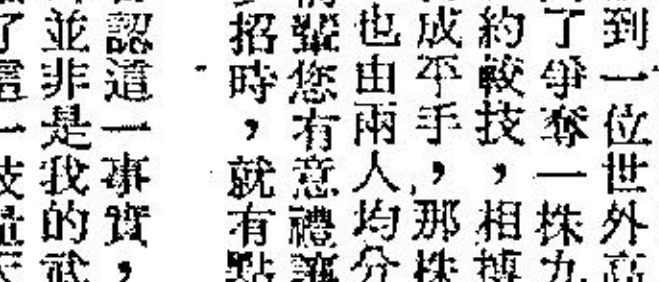 到一位世外高
了爭奪一株九
約較技,相搏
成平手,那株
也由兩人均分
輩您有意禮讓
招時,就有點
認這一事實,
並非是我的武
了這一技